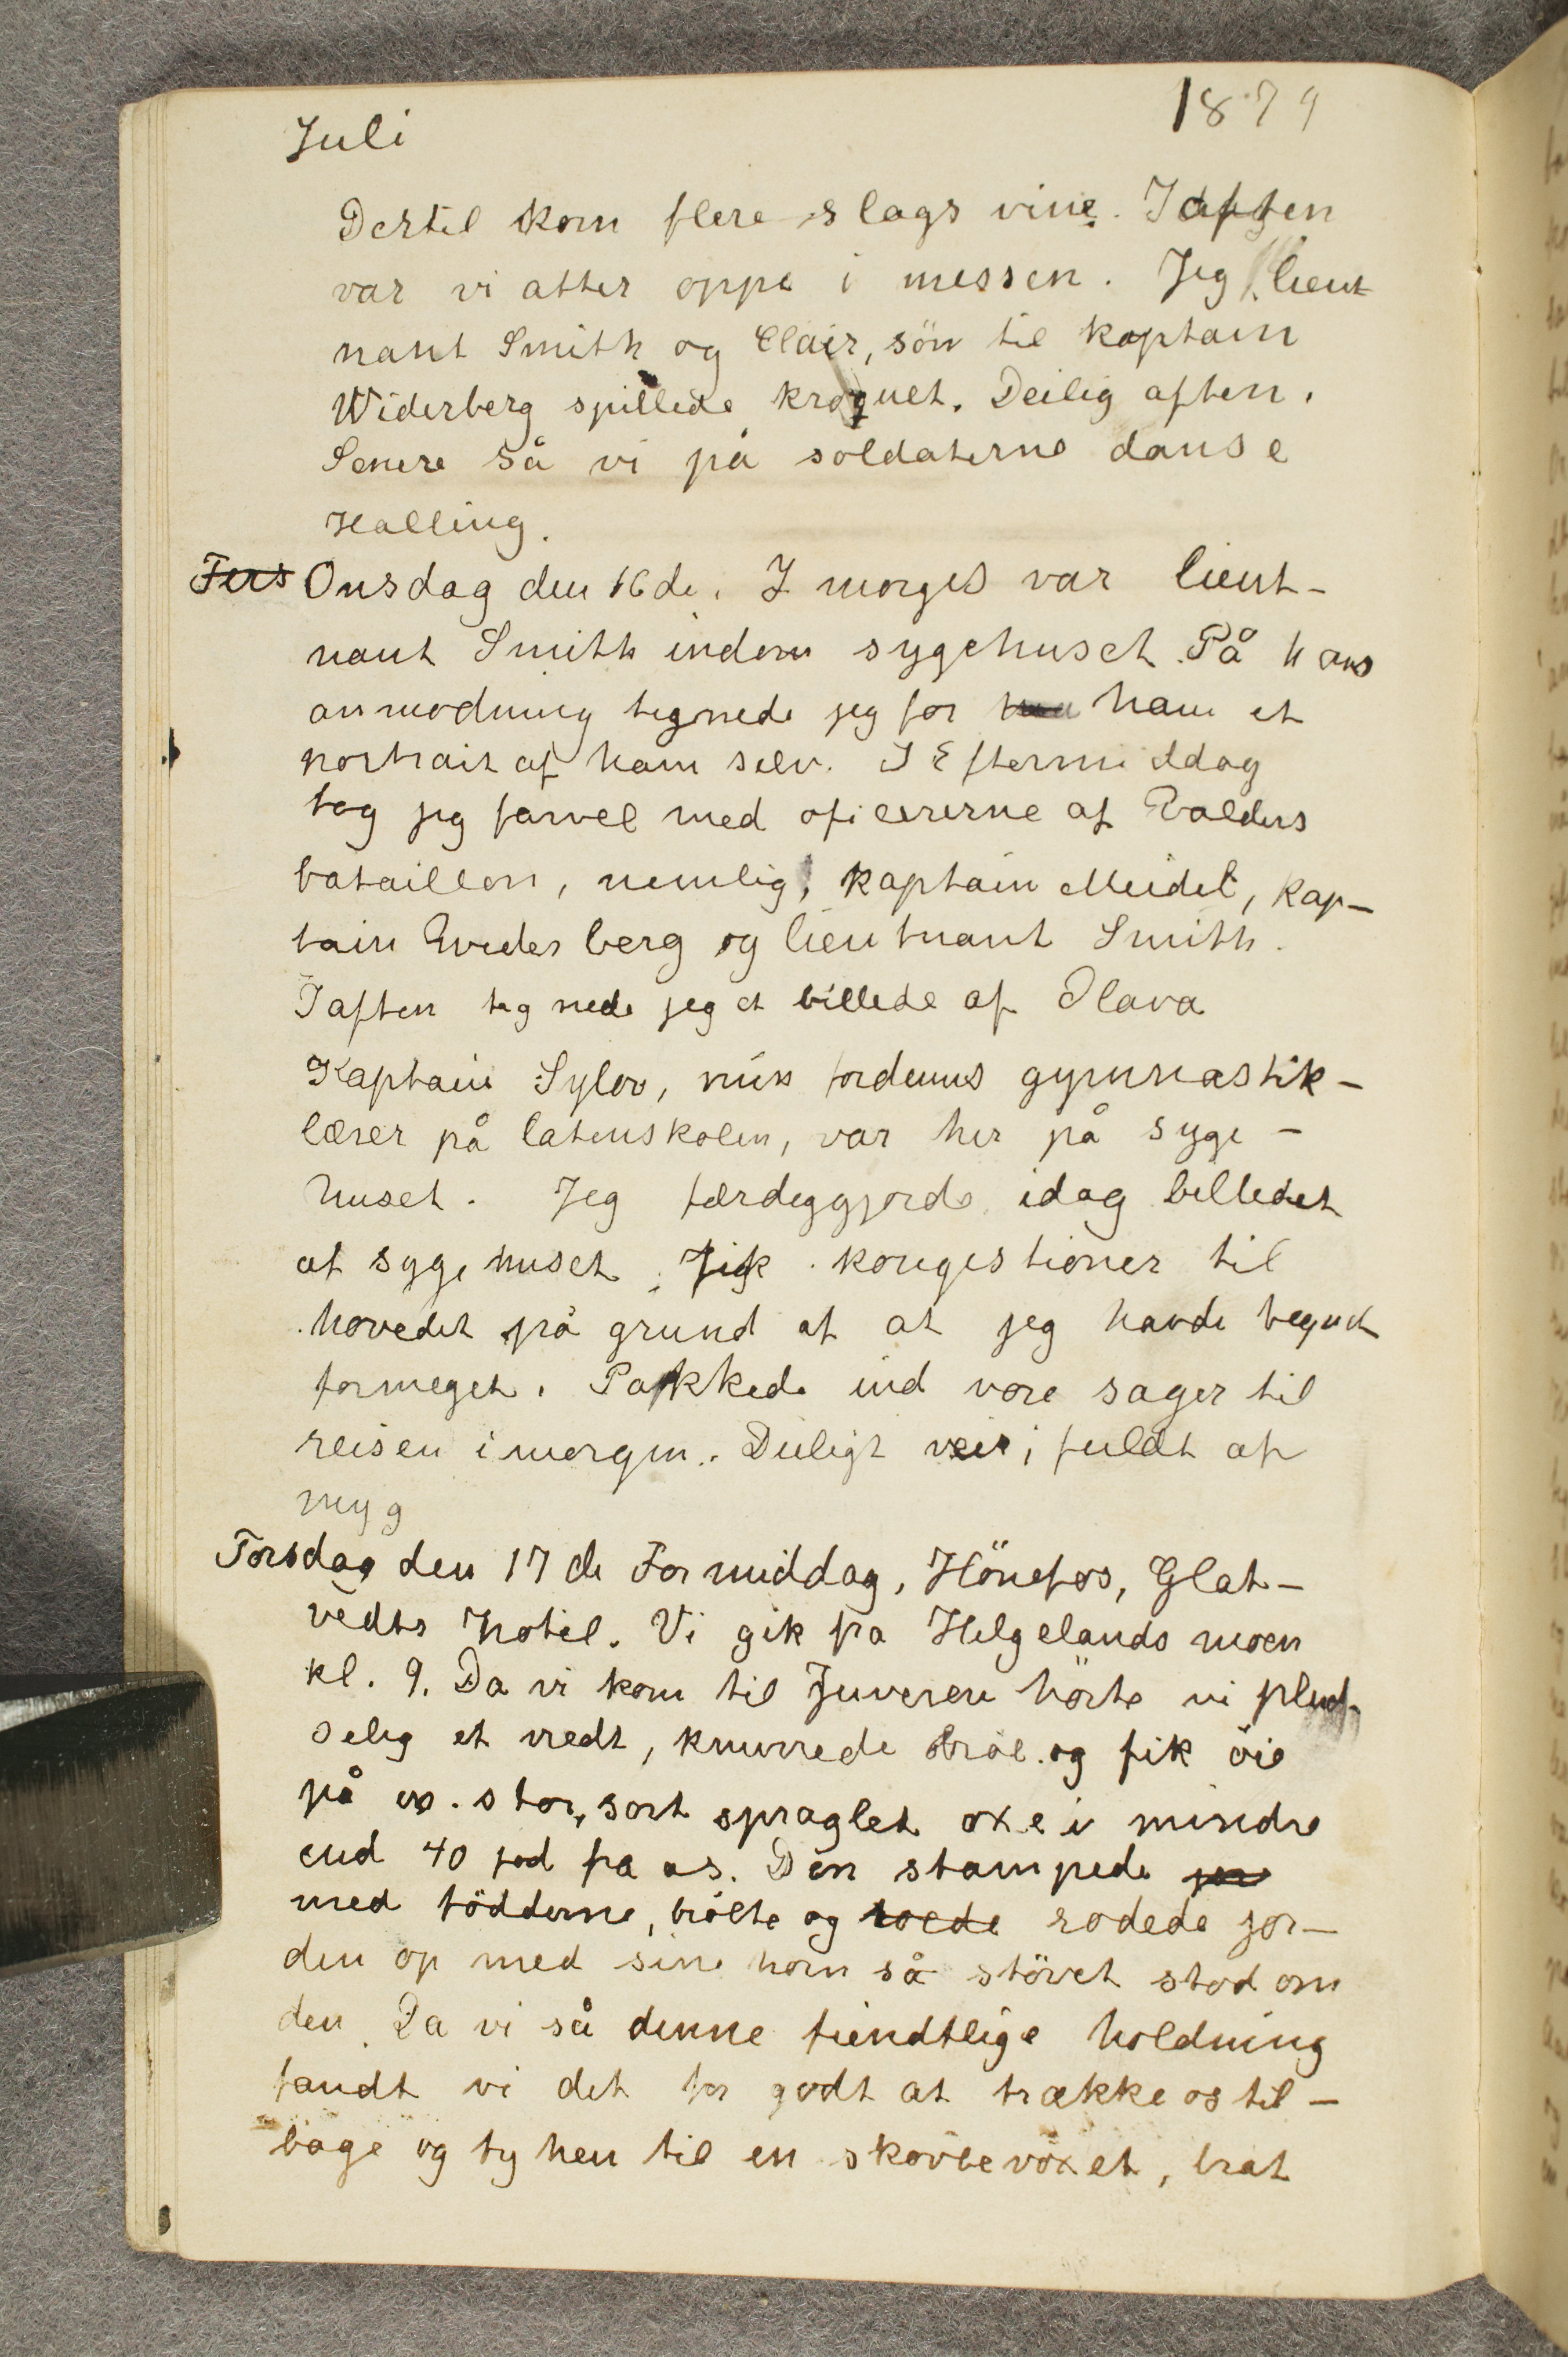 1879
Juli
Dertil kom flere slags vine. Iaften
var vi atter oppe i messen. Jeg, lieut-
nant Smith og Clair, sön til kaptain
Widerberg spillede kroquet. Deilig aften.
Senere så vi på soldaterne danse
Halling.
Onsdag den 16de. I morges var lieut-
nant Smith indom sygehuset. På hans
anmodning tegnede jeg for ham et
portrait af ham selv. I Eftermiddag
tog jeg farvel med oficererne af Valders
bataillon, nemlig; kaptain Meidel, kap-
tain Widerberg og lieutnant Smith.
Iaften tegnede jeg et billede af Olava
Kaptain Sylov, min fordums gymnastik-
lærer på latinskolen, var her på syge-
huset. Jeg færdeggjorde idag billedet
af sygehuset. Fik kongestioner til
hovedet på grund af at jeg havde tegnet
formeget. Pakkede ind vore sager til
reisen imorgen. Deiligt veir; fuldt af
myg
Torsdag den 17de Formiddag, Hönefos, Glat-
vedts hotel. Vi gik fra Helgelandsmoen
kl. 9. Da vi kom til Juveren hörte vi plud-
selig et vredt, knurrede bröl og fik öie
på en stor, sort spraglet oxe i mindre
end 40 fod fra os. Den stampede
med födderne, brölte og rodede jor-
den op med sine horn så stövet stod om
den. Da vi så denne fiendtlige holdning
fandt vi det for godt at trække os til-
bage og ty hen til en skovbevoxet, brat